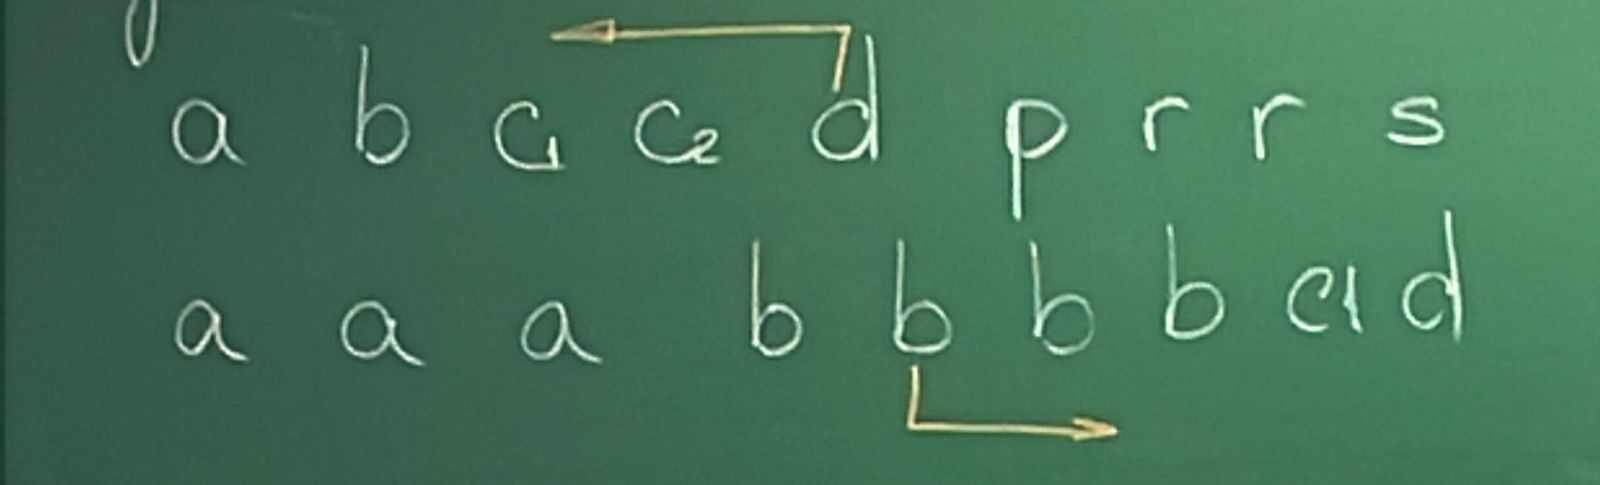 a b c1 c2 d p r r s
a a a b b b b c1 d